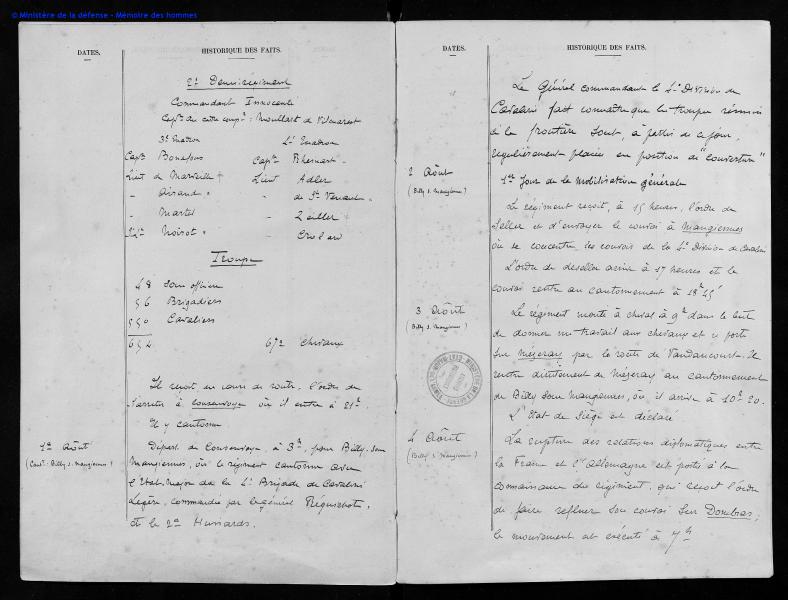 © Ministère de la défense - Mémoire des hommes
DATES.
HISTORIQUE DES FAITS.
2e Demi-régiment
Commandant Innocenti
Capne au cadre compre : Moullart de Vilmarest
3e Escadron 4e Escadron
Capne Bonafous Capne Bhernart
Lieut de Marveille Lieut Adler
- Airaud - de St Venant
- Martel - Zeiller
S/Lt Noirot
Troupe
48 sous officiers
56 Brigadiers
550 Cavaliers
654 672 Chevaux
Il reçoit en cours de route, l'ordre de
s'arrêter à Consenvoye où il entre à 21h
Il y cantonne
1er Août
(Cant. Billy s. Mangiennes)
Départ de Consenvoye, à 3h, pour Billy-sous
Mangiennes, où le régiment cantonne avec
l'Etat-Major de la 4e Brigade de Cavalerie
Légère, commandée par le général Réquichot,
et le 2e Hussards.
DATES.
HISTORIQUE DES FAITS.
Le Général commandant la 4e Division de
Cavalerie fait connaître que les troupes réunies
à la frontière sont, à partir de ce jour,
régulièrement placées en position de "couverture"
2 Août
(Billy s. Mangiennes)
1er Jour de la mobilisation générale
Le régiment reçoit, à 15 heures, l'ordre de
seller et d'envoyer le convoi à Mangiennes
où se concentre les convois de la 4e Division de Cavalerie
L'ordre de desseller arrive à 17 heures et le
convoi rentre au cantonnement à 18h45
3 Août
(Billy s. Mangiennes)
Le régiment monte à cheval à 9h dans le but
de donner un travail aux chevaux et se porte
sur Mézeray par la route de Vaudancourt. Il
rentre directement de Mézeray au cantonnement
de Billy sous Mangiennes, où il arrive à 10h20.
L'Etat de Siège est déclaré
4 Août
(Billy s. Mangiennes)
La rupture des relations diplomatiques entre
la France et l'Allemagne est portée à la
connaissance du régiment, qui reçoit l'ordre
de faire refluer son convoi sur Dombras;
le mouvement est exécuté à 7h